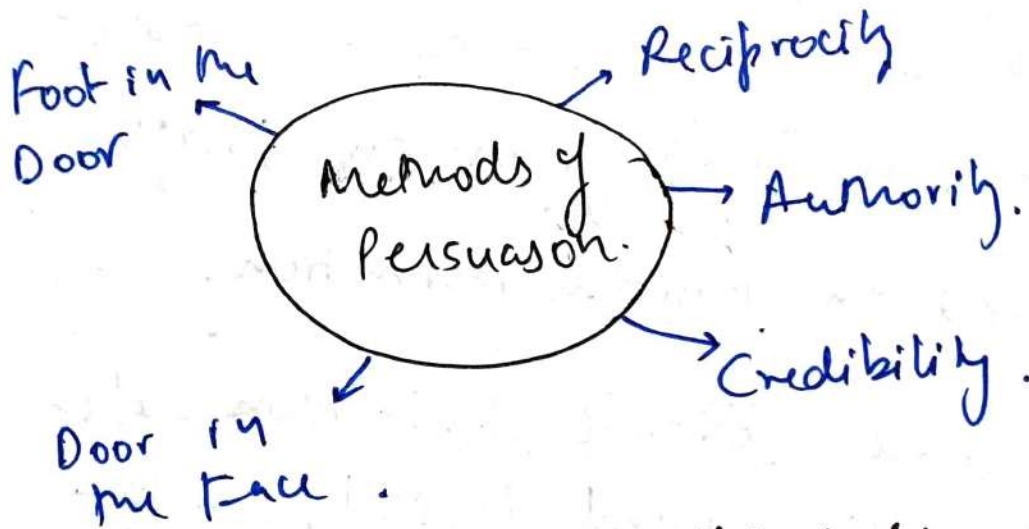 Foot in the
Door
Reciprocity
Methods of
Persuason.
Authority.
Credibility.
Door in
the Face.